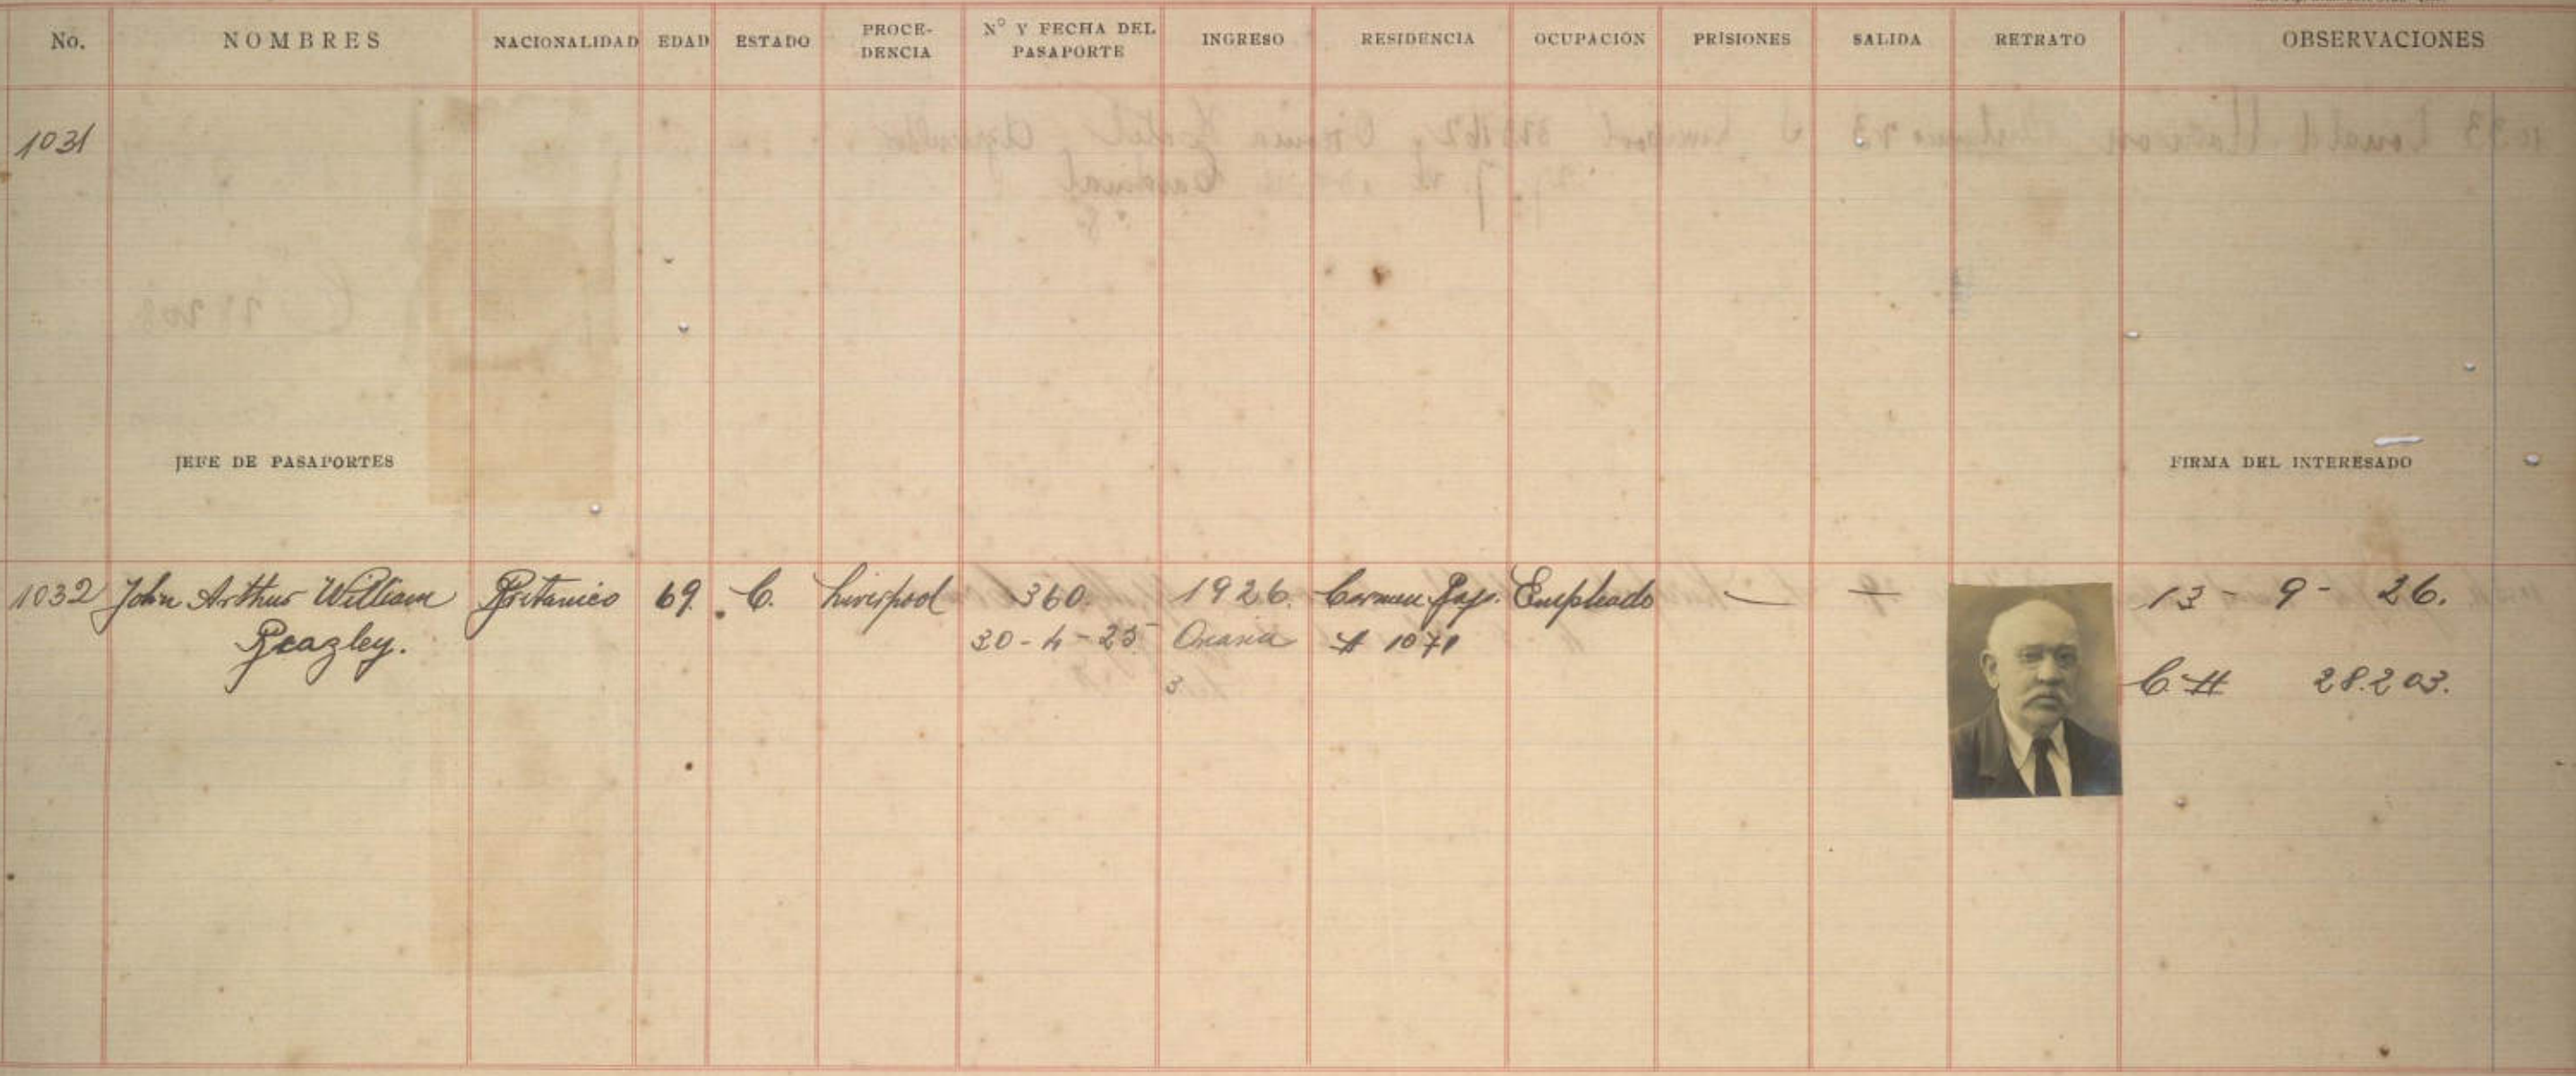 No. NOMBRES NACIONALIDAD EDAD ESTADO PROCE-DENCIA Nº Y FECHA DEL PASAPORTE INGRESO RESIDENCIA OCUPACIÓN PRISIONES SALIDA RETRATO OBSERVACIONES
1031
JEFE DE PASAPORTES FIRMA DEL INTERESADO
1032 John Arthur William Britanico 69. C. Liverpool 360. 1926. Carmen Empleado — — 13 - 9 - 26.
Beazley. 30-4-25 # 1071
3.
C. # 28.203.